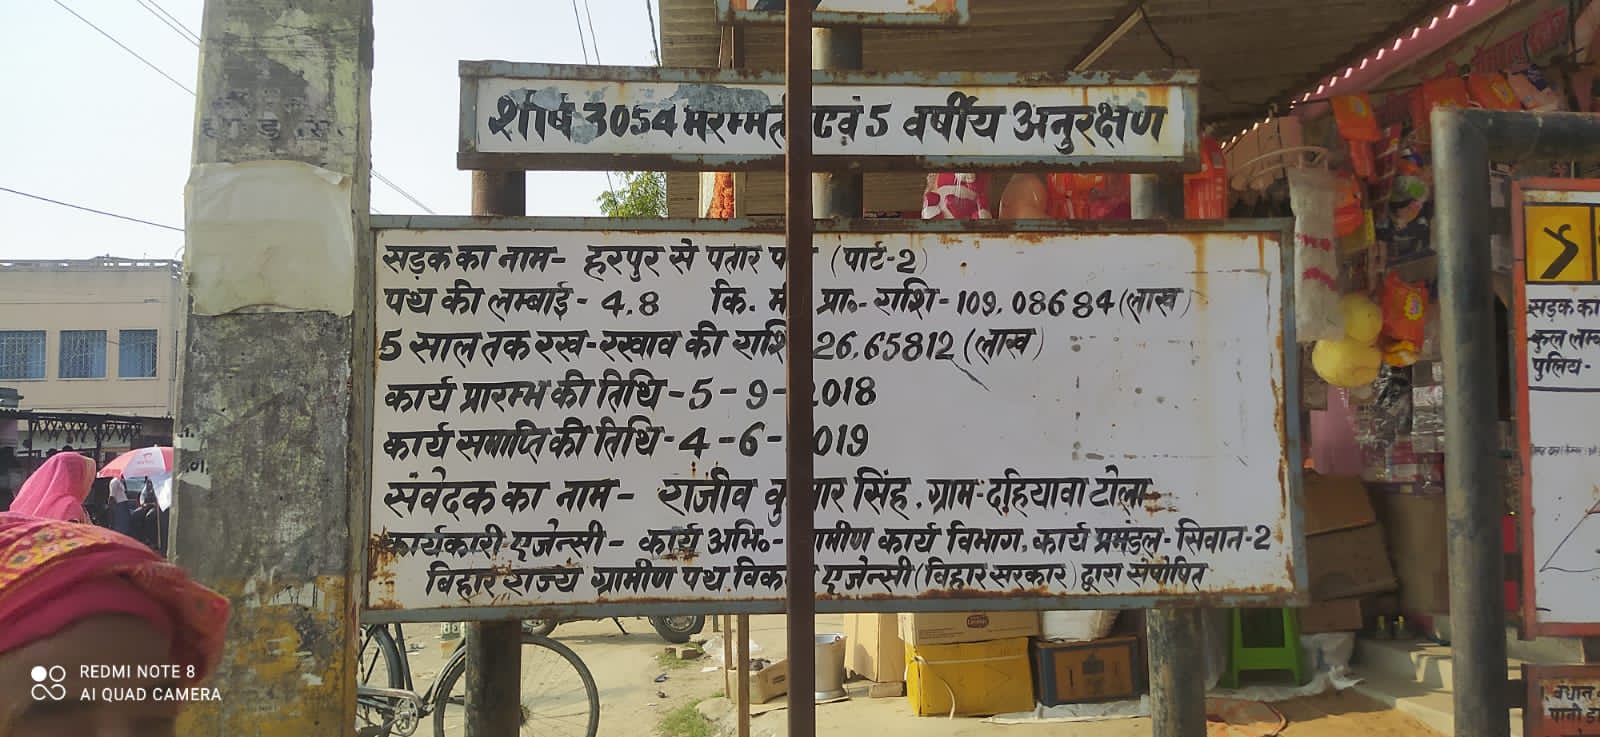 शीर्ष 3054 मरम्मती एवं 5 वर्षीय अनुरक्षण
सड़क का नाम- हरपुर से पतार (पार्ट-2)
पथ की लम्बाई- 4.8 कि. मी. प्रा०- राशि- 109.08684 (लाख)
5 साल तक रख-रखाव की राशि 26.65812 (लाख)
कार्य प्रारम्भ की तिथि - 5 - 9 - 2018
कार्य समाप्ति की तिथि - 4 - 6 - 2019
संवेदक का नाम - राजीव कुमार सिंह, ग्राम- दहियावा टोला
कार्यकारी एजेन्सी - कार्य अभि०- ग्रामीण कार्य विभाग, कार्य प्रमंडल- सिवान-2
बिहार राज्य ग्रामीण पथ विकास एजेन्सी (बिहार सरकार) द्वारा संपोषित
सड़क का
कुल लम्बा
पुलिय-
पानी
REDMI NOTE 8
AI QUAD CAMERA